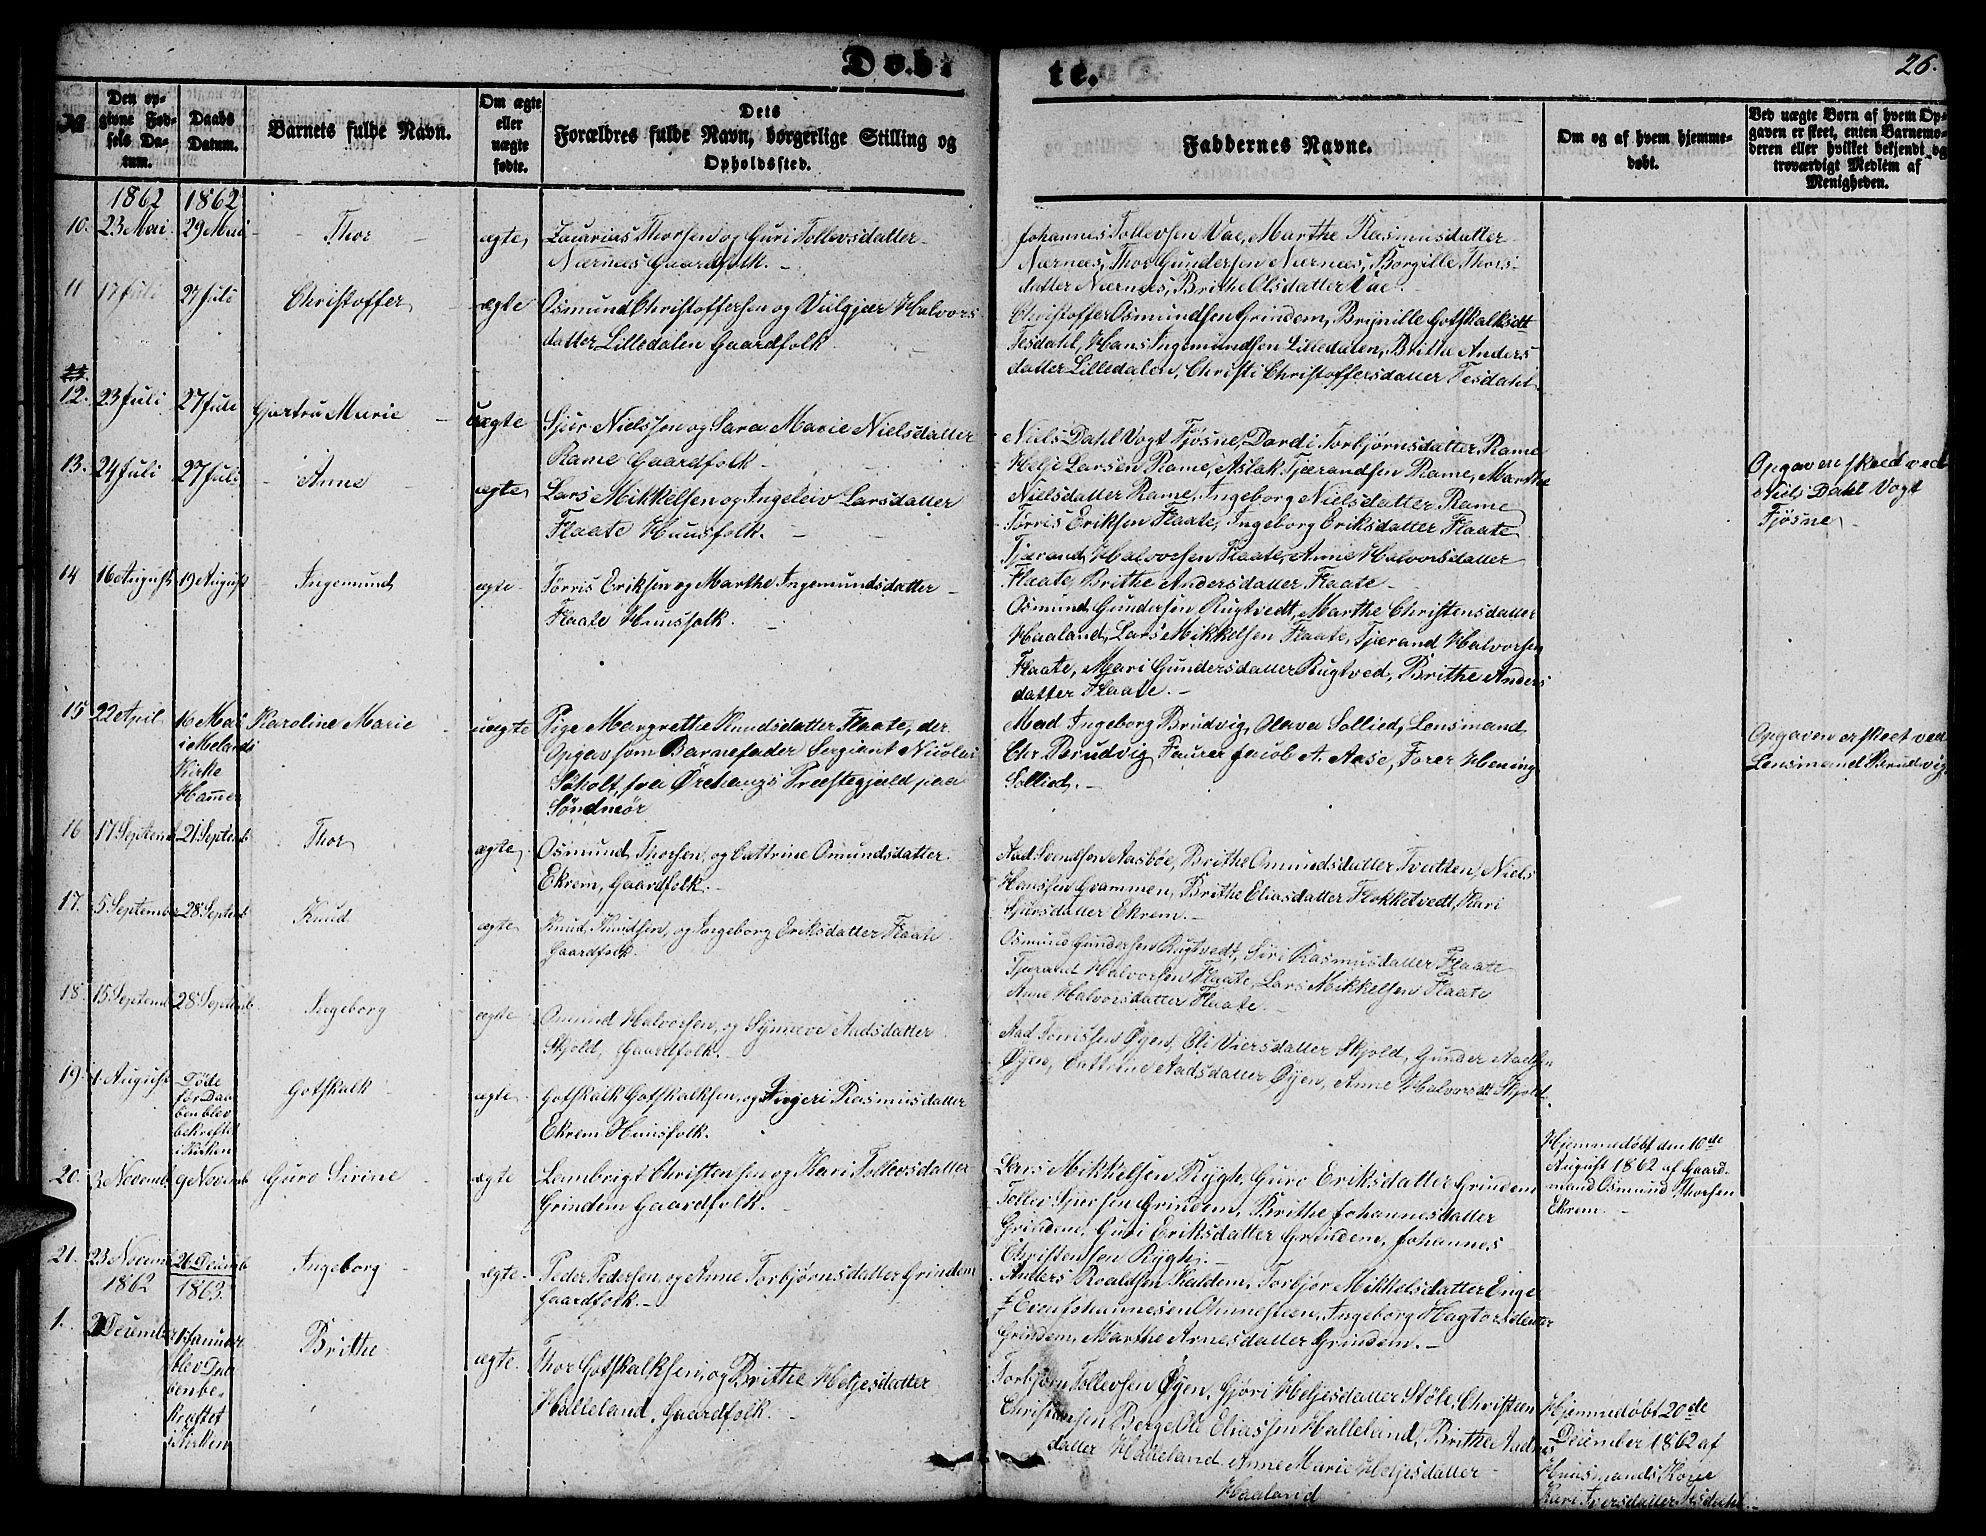 Døb-
te.
26.
№
Den op-
givne Fød-
sels Da-
tum.
Daabs
Datum.
Barnets fulde Navn.
Om ægte
eller
uægte
fødte.
Dets
Forældres fulde Navn, borgerlige Stilling og
Opholdssted.
Faddernes Navne.
Om og af hvem hjemme-
døbt.
Ved uægte Børn af hvem Op-
gaven er skeet, enten Barnemo-
deren eller hvilket bekjendt og
troværdigt Medlem af
Menigheden.
1862 1862
10. 23 Mai 29 Mai Thor ægte Zacarias Thorsen og Guri Tollevsdatter
Nærnæs Gaardfolk.
Johannes Tollevsen Vae, Marthe Rasmusdatter
Nærnæs, Thor Gundersen Nærnæs, Borgille Thors-
datter Nærnæs, Brithe Olsdatter Vae
11 17 Juli 27 Juli Christoffer ægte Osmund Christoffersen og Valgjær Halvors
datter Lilledalen Gaardfolk
Christoffer Osmundsen Grindem, Brynille Gotskalksdtt
Tesdahl, Hans Ingemundsen Lilledalen, Brithe Anders
datter Lilledalen, Christi Christoffersdatter Tesdahl
12. 23 Juli 27 Juli Gjertru Marie Uægte Sjur Nielssen og Sara Marie Nielsdatter
Rame Gaardfolk
Niels Dahl Vogt Fjøsne, Dordi Torbjørnsdatter Rame
Helje Larsen Rame, Aslak Tjærandsen Rame, Marthe
Nielsdatter Rame, Ingeborg Nielsdatter Rame
Opgaven skeed ved
Niels Dahl Vogt
Fjøsne
13. 24 Juli 27 Juli Anne ægte Lars Mikkelsen og Ingeleiv Larsdatter
Flaate Huusfolk.
Tørris Eriksen Flaate, Ingeborg Eriksdatter Flaate
Tjærand Halvorsen Flaate, Anne Halvorsdatter
Flaate Brithe Andersdatter Flaate
14 16 August 19 August Ingemund ægte Tørris Eriksen og Marthe Ingemundsdatter
Flaate Huusfolk.
Osmund Gundersen Rugtvedt, Marthe Christensdatter
Haaland, Lars Mikkelsen Flaate, Tjærand Halvorsen
Flaate, Mari Gundersdatter Rugtved, Brithe Anders
datter Flaate.
15 22 April 16 Mai
i Melands
Kirke
Hammer
Karoline Marie uægte Pige Margrethe Knudsdatter Flaate, der
Opgav som Barnefader Sergiant Nicolai
Saholt, fra Ørstangs Præstegjæld paa
Søndmør
Mad Ingeborg Brudvig, Olava Sollied, Lensmand
Chr. Brudvig, Faurer Jacob A. Aase, Forer Hening
Sollied.
Opgaven er skeet ved
Lensmand Brudvig
16 17 Septemb 21 Septemb Thor ægte Osmund Thorsen, og Cattrine Omundsdatter
Ekrem, Gaardfolk.
Aad Svendsen Aasbøe, Brithe Omundsdatter Tvedten, Niels
Hanssen Gvammen, Brithe Eliasdatter Flokketvedt, Kari
Sjursdatter Ekrem.
17. 5 September 28 Septemb Knud ægte Knud Knudsen, og Ingeborg Eriksdatter Flaate
Gaardfolk.
Osmund Gundersen Rugtvedt, Siri Rasmusdatter Flaate
Tjærand Halvorsen Flaate, Lars Mikkelsen Flaate
Anne Halvorsdatter Flaate.
18. 15 Septemb 28 Septemb Ingeborg ægte Omund Halvorsen, og Synneve Aadsdatter
Skjold, Gaardfolk.
Aad Tonissen Øyen, Eli Viersdatter Skjold, Gunder Aadsen
Øyen, Cattrine Aadsdatter Øyen, Anne Halvorsdt Skjold.
19. 1 August Døde
før Daa
ben blev
bekræftet
i Kirken
Gotskalk ægte Gotskalk Gotskalksen, og Ingeri Rasmusdatter
Ekrem Huusfolk.
Hjemmedøbt den 10de
August 1862 af Gaard-
mand Osmund Thorsen
Ekrem.
20. 3 Novemb 9 Novemb Guro Sirine ægte Lambrigt Christensen og Kari Tollevsdatter
Grindem Gaardfolk.
Lars Mikkelsen Rygh, Guro Eriksdatter Grindem
Tollev Sjursen Grindem, Brithe Johannesdatter
Grindem, Guri Eriksdatter Grindem, Johannes
Christensen Rygh.
21. 23 Novemb 26 Decemb Ingeborg ægte Peder Pedersen, og Anne Torbjørnsdatter Grindem
Gaardfolk.
Anders Roaldsen Kaldem, Torbjor Mikkelsdatter Enge
Johannesen Ønnesteen, Ingeborg Hagtorsdatter
Grindem, Marthe Arnesdatter Grindem.
1862 1863.
1. 2 December 1 Januar
blev Daa
ben be-
kræftet
i Kirken
Brithe ægte Thor Gotskalksen, og Brithe Heljesdatter
Halleland, Gaardfolk.
Torbjørn Tollevsen Øyen, Gjøri Heljesdatter Støle, Christen
Christensen Berge, Ole Eliassen Halleland, Brithe Aadnes
datter Halleland Anne Marie Heljesdatter
Haaland
Hjemmedøbt 20de
December 1862 af
Huusmands Kone
Kari Iversdatter Tesdahl.